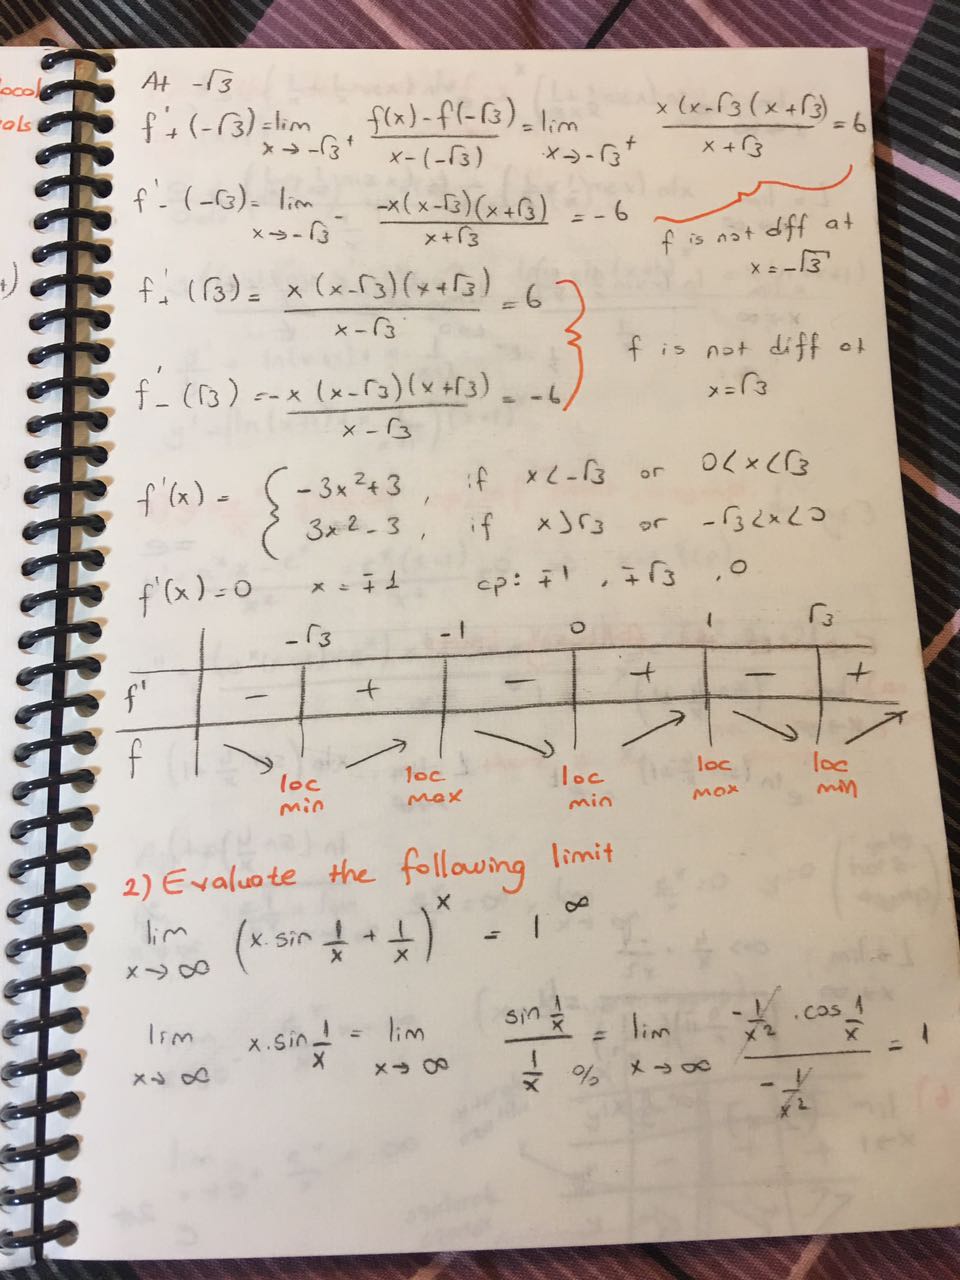 local
als
t)
At -√3
f'₊(-√3) = lim x→-√3⁺ (f(x) - f(-√3))/(x-(-√3)) = lim x→-√3⁺ (x(x-√3(x+√3))/(x+√3) = 6
f'₋(-√3) = lim x→-√3⁻ (-x(x-√3)(x+√3))/(x+√3) = -6
f is not dff at
x = -√3
f'₊(√3) = (x(x-√3)(x+√3))/(x-√3) = 6
f is not diff at
x = √3
f'₋(√3) = -(x(x-√3)(x+√3))/(x-√3) = -6
f'(x) = { -3x²+3 , if x < -√3 or 0 < x < √3
3x²-3 , if x > √3 or -√3 < x < 0
f'(x) = 0 x = ∓1 cp: ∓1 , ∓√3 , 0
-√3 -1 0 1 √3
f' - + - + - +
f ↘ ↗ ↘ ↗ ↘ ↗
loc min loc max loc min loc max loc min
2) Evaluate the following limit
lim x→∞ (x.sin 1/x + 1/x)^x = 1^∞
lim x→∞ x.sin 1/x = lim x→∞ (sin 1/x)/(1/x) 0/0 = lim x→∞ (-1/x² . cos 1/x)/(-1/x²) = 1